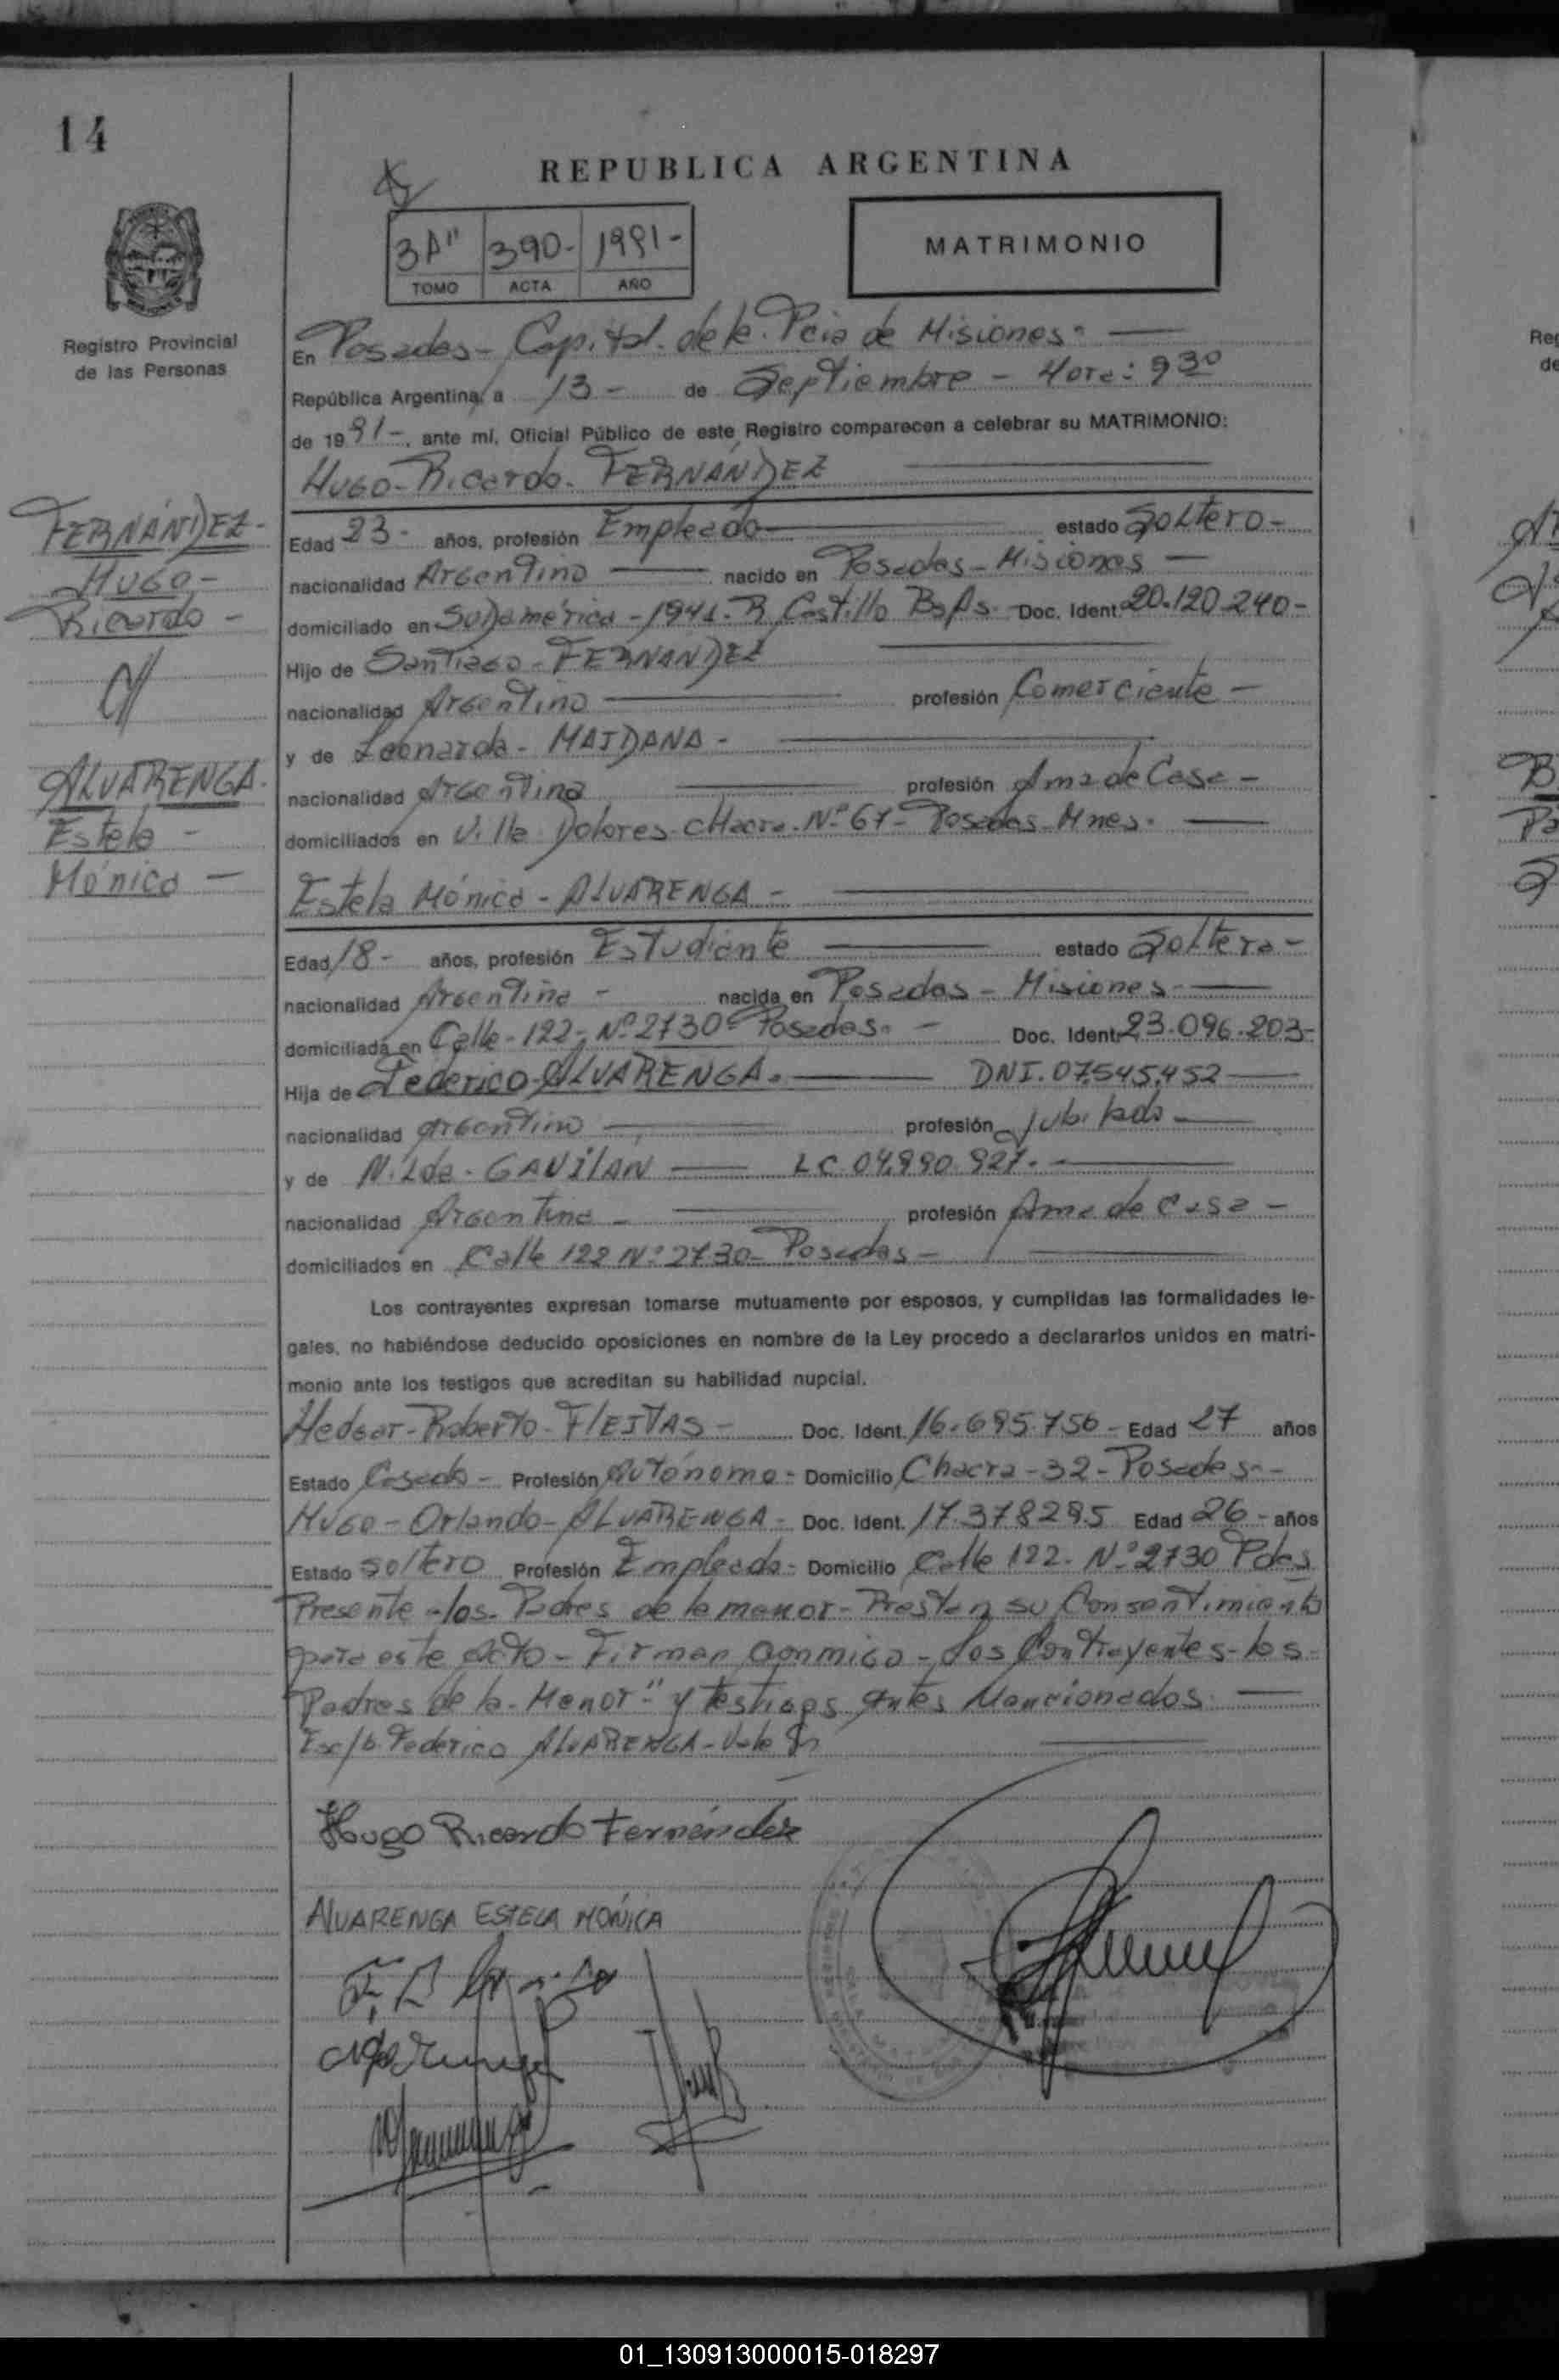 14
REPUBLICA ARGENTINA
3A" 390- 1991-
TOMO ACTA AÑO
MATRIMONIO
Registro Provincial
de las Personas
En Posadas - Capital. de la. Pcia de Misiones -
República Argentina, a 13 - de Septiembre - Hora: 9 30
de 19 91 -, ante mí, Oficial Público de este Registro comparecen a celebrar su MATRIMONIO:
Hugo - Ricardo - FERNÁNDEZ
FERNÁNDEZ -
Hugo -
Ricardo -
C//
ALVARENGA.
Estela -
Mónica -
Edad 23 - años, profesión Empleado estado Soltero -
nacionalidad Argentino nacido en Posadas - Misiones -
domiciliado en Sudamérica - 1941 - R. Castillo Bs As - Doc. Ident. 20.120.240 -
Hijo de Santiago - FERNANDEZ
nacionalidad Argentino profesión Comerciante -
y de Leonarda - MAIDANA -
nacionalidad Argentina profesión Ama de Casa -
domiciliados en Villa Dolores - Chacra - Nº 67 - Posadas - Mnes.
Estela Mónica - ALVARENGA -
Edad 18 - años, profesión Estudiante estado Soltera -
nacionalidad Argentina - nacida en Posadas - Misiones -
domiciliada en Calle - 122 - Nº 2730 - Posadas - Doc. Ident. 23.096.203 -
Hija de Federico ALVARENGA. DNI. 07.545.452
nacionalidad Argentino profesión Jubilado
y de Nilda - GAVILÁN LC. 04.990.927.
nacionalidad Argentina - profesión Ama de Casa -
domiciliados en Calle 122 Nº 2730 - Posadas -
Los contrayentes expresan tomarse mutuamente por esposos, y cumplidas las formalidades le-
gales, no habiéndose deducido oposiciones en nombre de la Ley procedo a declararlos unidos en matri-
monio ante los testigos que acreditan su habilidad nupcial.
Hedgar - Roberto - FLEITAS - Doc. Ident. 16.695.756 - Edad 27 años
Estado Casado - Profesión Autónomo - Domicilio Chacra - 32 - Posadas -
Hugo - Orlando - ALVARENGA - Doc. Ident. 17.378.295 Edad 26 - años
Estado Soltero Profesión Empleado - Domicilio Calle 122 - Nº 2730 Pdas
Presente - los - Padres de la menor - Prestan su Consentimiento
para este Acto - Firman conmigo - los Contrayentes - los -
Padres de la - Menor" y testigos antes Mencionados.
Federico ALVARENGA - Vale
Hugo Ricardo Fernández
ALVARENGA ESTELA MÓNICA
01_130913000015-018297